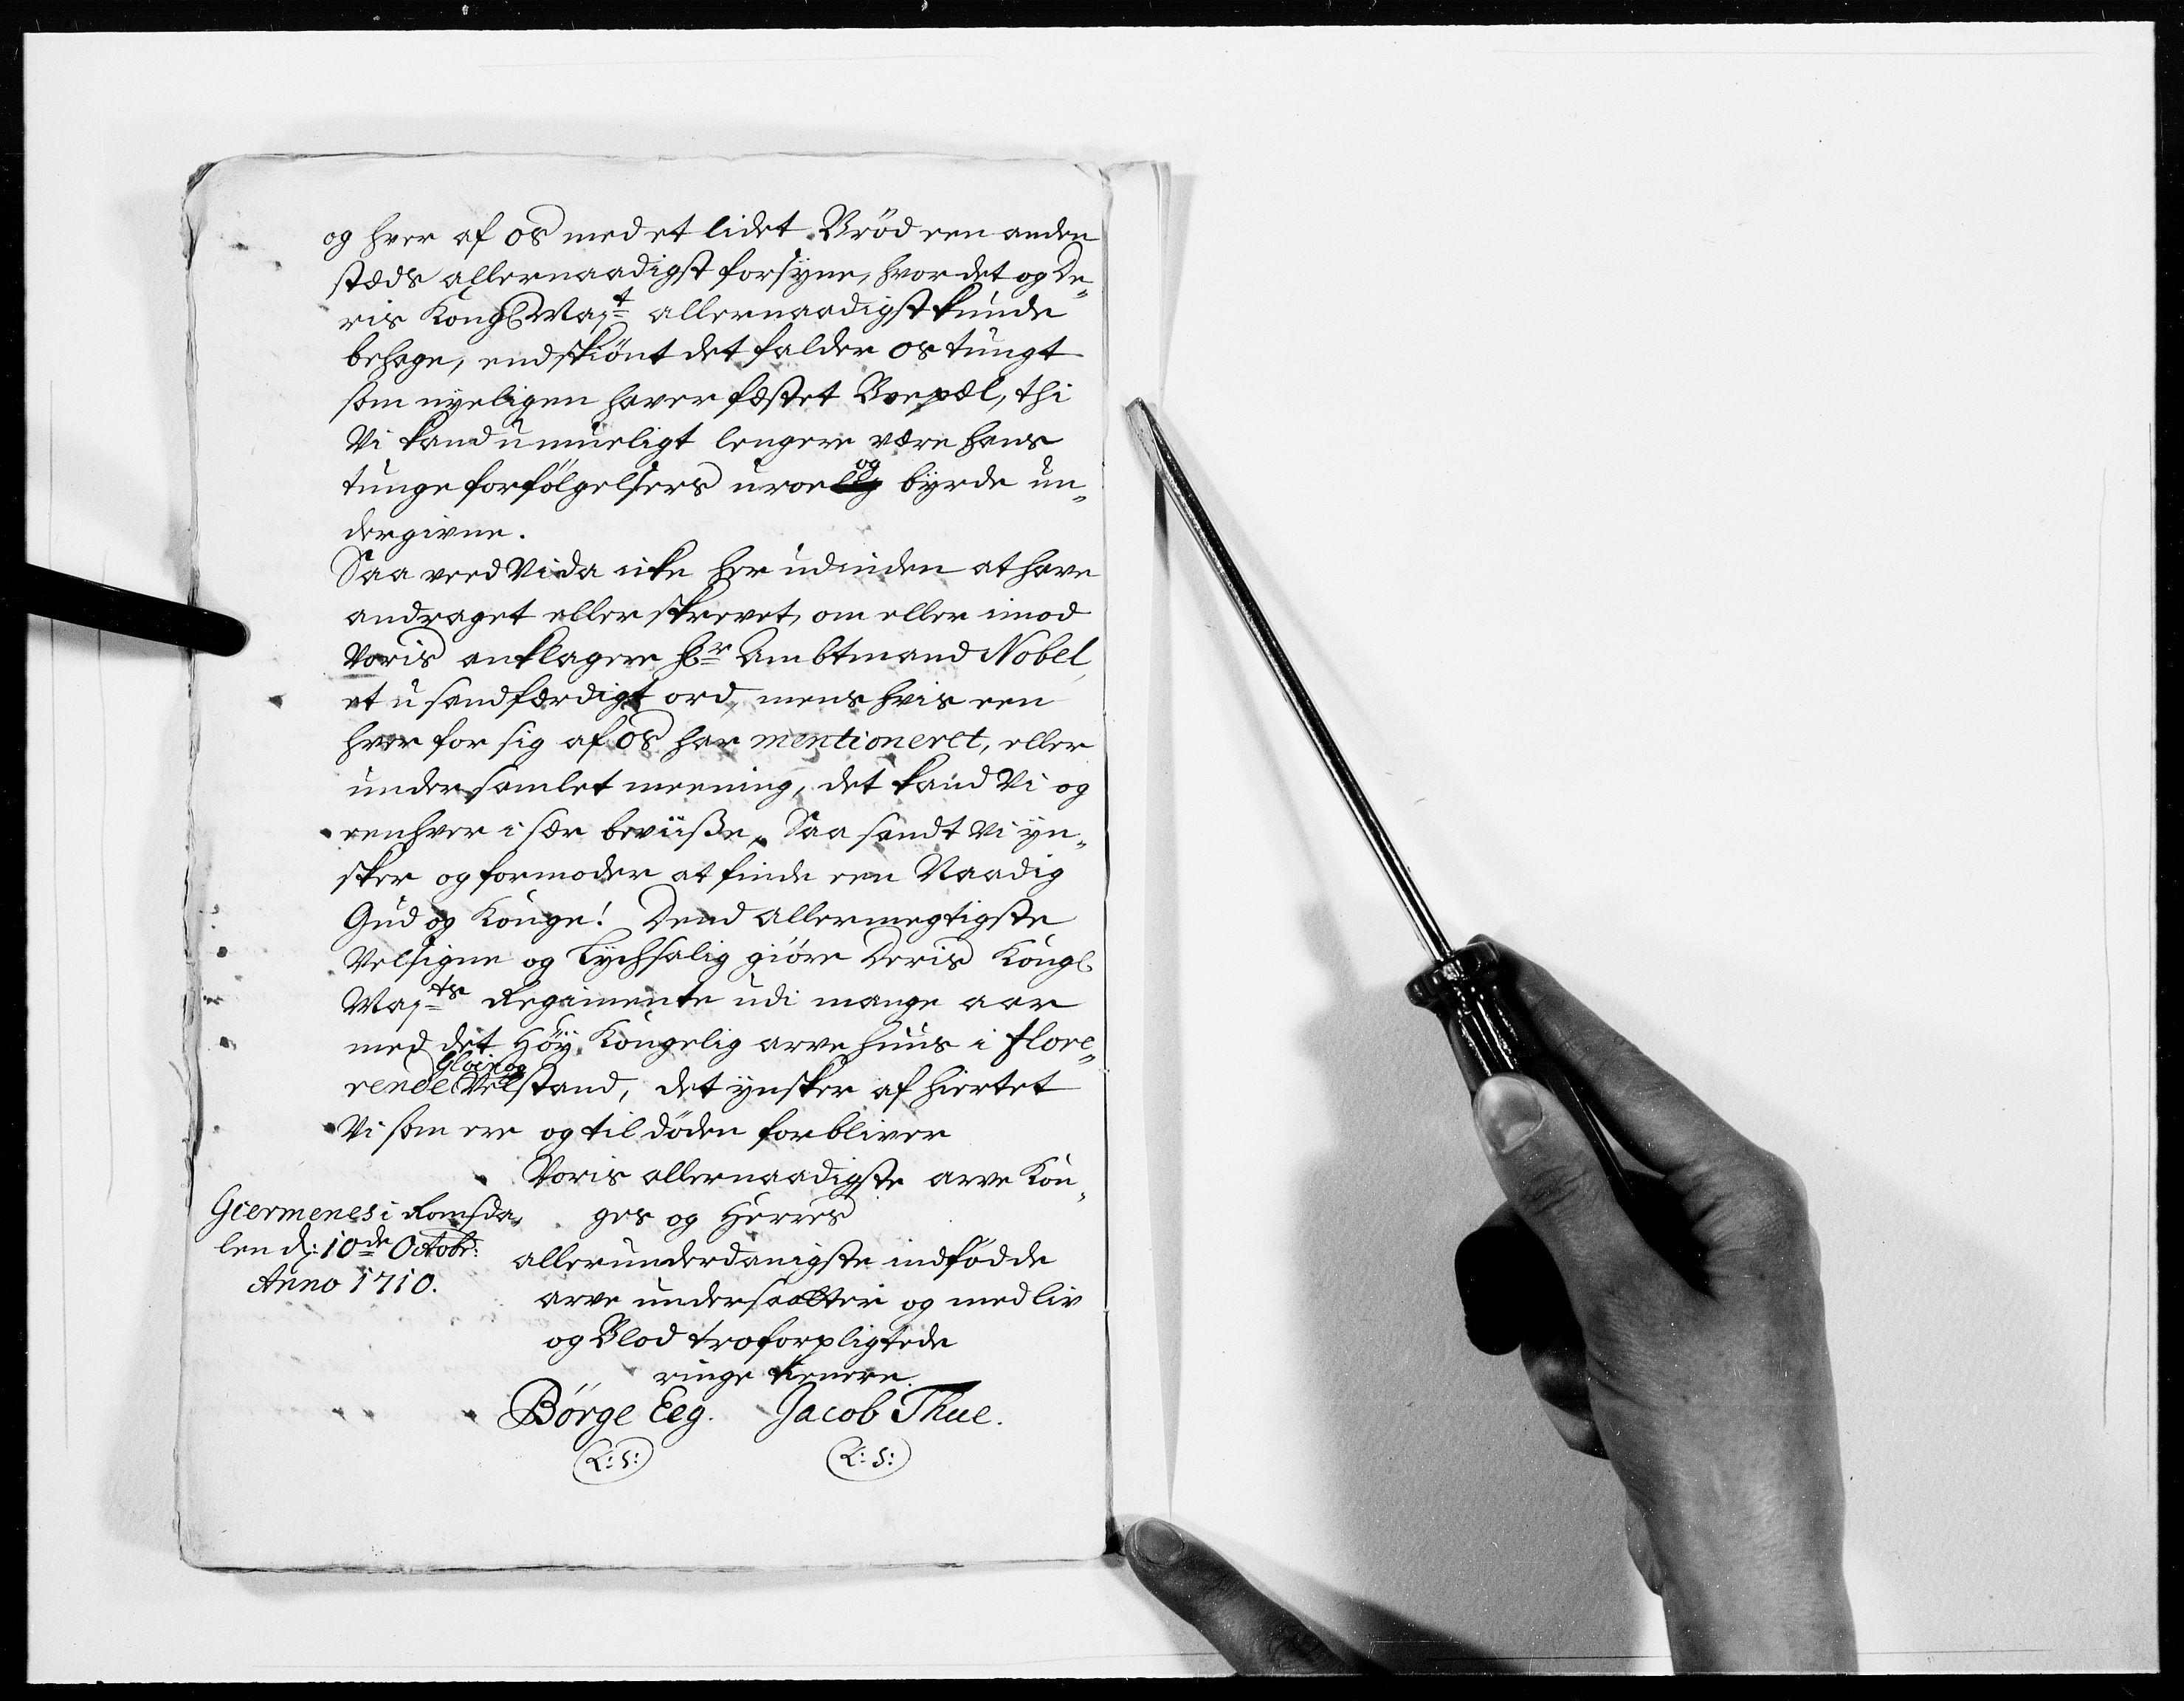 og hver af os med et lidet Brød een anden
stæds allernaadigst forsyne, hvor det og De„
ris Kongl Maj:t allernaadigst kunde
behage, endskiönt det falder os tungt
som nyeligen haver fæstet Boepæl, thi
Vi kand umueligt lengere være hans
tunge forfölgelsers uroe og byrde un„
dergivne.
Saa veed Vi da icke her udinden at have
andraget eller skrevet, om eller imod
Voris anklagere Hr Ambtmand Nobel,
et usandfærdigt ord, mens hvis een
hver for sig af os har mentioneret, eller
under samlet meening, det kand Vi og
eenhver i sær beviiße, Saa sandt Vi yn„
sker og formoder at finde een Naadig
Gud og Konge! Dend allermegtigste
Velsigne og Lychsalig giöre Deris Kongl
Maj:ts Regimente udi mange aar
med det Höy Kongelig arve huus i flore„
rende Velstand, det ynsker af hiertet
Vi som ere og til döden forbliver
Voris allernaadigste arve Kon„
ges og Herres
allerunderdanigste indfödde
arve undersaatter og med liv
og Blod troforpligtede
ringe tienere.
Giermenes i Romsda„
len d: 10de Octobr:
Anno 1710.
Börge Eeg. Jacob Thue.
L: S: L: S: